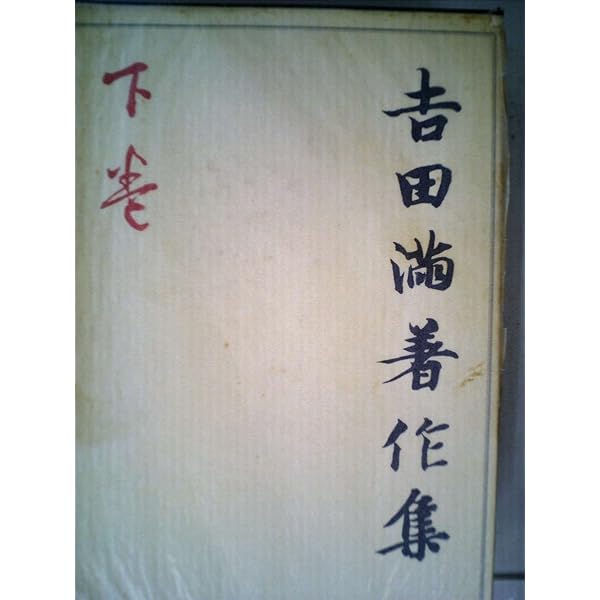 吉田満著作集
下巻